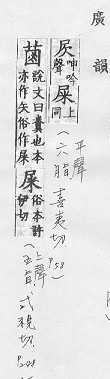 廣韻
㞙呻吟聲屎上同
(六脂喜夷切 p.58)
平聲
菌說文曰糞也本亦作矢俗作屎
屎俗本許伊切
(五旨式視切. p.248
上聲